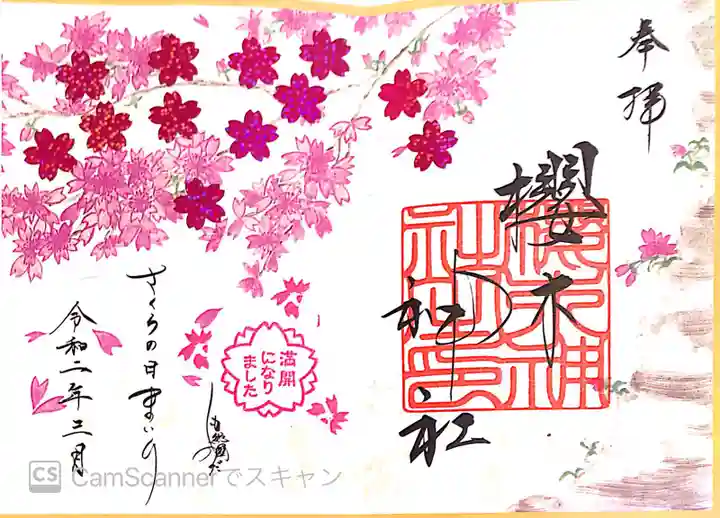 奉拝
櫻木
神社
さくらの日まいり
令和二年三月
満開
になり
ました
CS CamScannerでスキャン